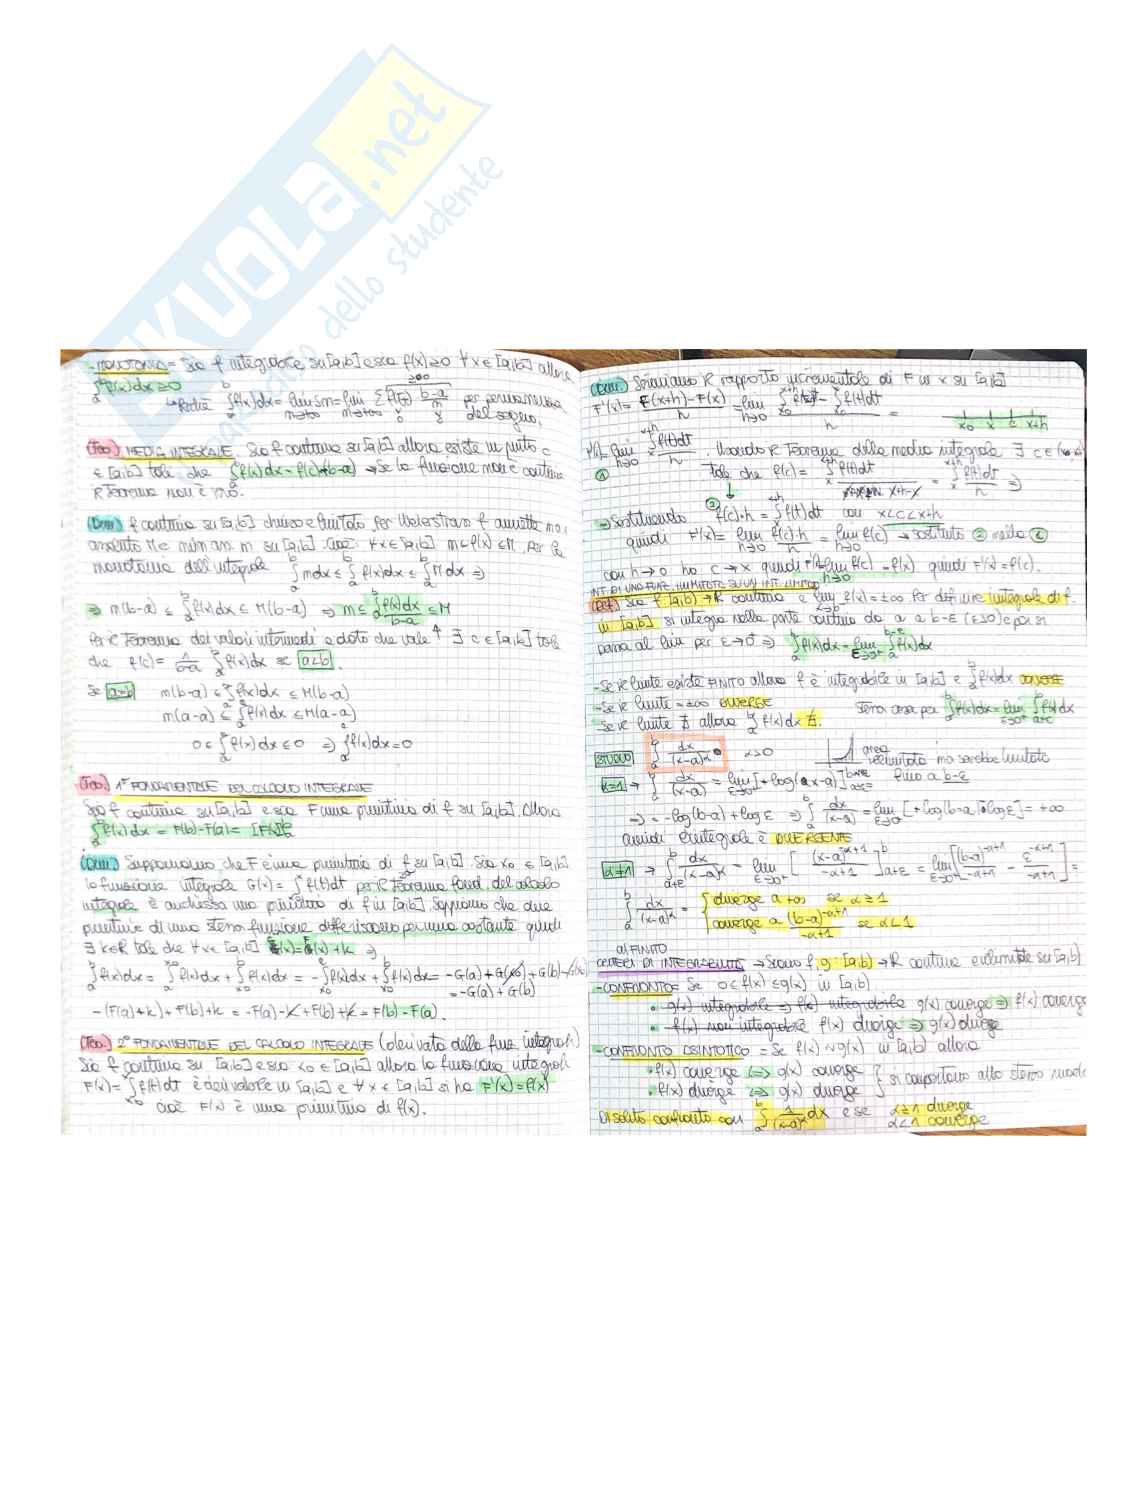 SKUOLA.net
dello studente
- MONOTONIA = Sia f integrabile su [a,b] e sia f(x)≥0 ∀x∈[a,b] allora
∫ₐᵇ f(x)dx ≥0
↳ Poiché ∫ₐᵇ f(x)dx = lim Sn = lim Σ f(ξ) b-a/n per permanenza
del segno.
(Teo.) MEDIA INTEGRALE. Sia f continua su [a,b] allora esiste un punto c
∈ [a,b] tale che ∫ₐᵇ f(x)dx = f(c)·(b-a) → Se la funzione non è continua
il Teorema non è
(Dim) f continua su [a,b] chiuso e limitato per Weierstrass f ammette max
assoluto M e min ass. m su [a,b]. Cioè: ∀x∈[a,b] m≤f(x)≤M, per la
monotonia dell'integrale ∫ₐᵇ mdx ≤ ∫ₐᵇ f(x)dx ≤ ∫ₐᵇ Mdx ⇒
⇒ m(b-a) ≤ ∫ₐᵇ f(x)dx ≤ M(b-a) ⇒ m ≤ ∫ₐᵇ f(x)dx / b-a ≤ M
Per il Teorema dei valori intermedi e dato che vale ↑ ∃ c∈[a,b] tale
che f(c) = 1/b-a ∫ₐᵇ f(x)dx se a<b.
Se a=b m(b-a) ≤ ∫ₐᵇ f(x)dx ≤ M(b-a)
m(a-a) ≤ ∫ₐᵃ f(x)dx ≤ M(a-a)
0 ≤ ∫ₐᵃ f(x)dx ≤ 0 ⇒ ∫ₐᵃ f(x)dx = 0
(Teo.) 1° FONDAMENTALE DEL CALCOLO INTEGRALE
Sia f continua su [a,b] e sia F una primitiva di f su [a,b]. Allora
∫ₐᵇ f(x)dx = F(b)-F(a) = [F(x)]ₐᵇ
(Dim) Supponiamo che F è una primitiva di f su [a,b]. Sia x₀ ∈ [a,b]
la funzione integrale G(x) = ∫ f(t)dt per il Teorema fond. del calcolo
integrale è anch'essa una primitiva di f in [a,b]. Sappiamo che due
primitive di una stessa funzione differiscono per una costante quindi
∃ k∈R tale che ∀x∈[a,b] G(x)=F(x)+k ⇒
∫ₐᵇ f(x)dx = ∫ₐˣ⁰ f(x)dx + ∫ₓ₀ᵇ f(x)dx = -∫ₓ₀ᵃ f(x)dx + ∫ₓ₀ᵇ f(x)dx = -G(a)+G(x₀)+G(b)-G(x₀)
= -G(a)+G(b)
-(F(a)+k)+F(b)+k = -F(a)-k+F(b)+k = F(b)-F(a).
(Teo.) 2° FONDAMENTALE DEL CALCOLO INTEGRALE (derivata della funz. integrale)
Sia f continua su [a,b] e sia x₀∈[a,b] allora la funzione integrale
F(x)=∫ₓ₀ˣ f(t)dt è derivabile in [a,b] e ∀x∈[a,b] si ha F'(x)=f(x)
cioè F(x) è una primitiva di f(x).
(Dim.) Scriviamo il rapporto incrementale di F in x su [a,b]
F'(x)= F(x+h)-F(x) / h = lim h→0 ∫ₓ₀ˣ⁺ʰ f(t)dt - ∫ₓ₀ˣ f(t)dt / h =
x₀ x c x+h
F'(x)= lim h→0 ∫ₓˣ⁺ʰ f(t)dt / h. Usando il Teorema della media integrale ∃ c∈
① tale che f(c) = ∫ₓˣ⁺ʰ f(t)dt / x+h-x = ∫ₓˣ⁺ʰ f(t)dt / h ⇒
⇒ Sostituendo ② f(c)·h = ∫ₓˣ⁺ʰ f(t)dt con x<c<x+h
quindi F'(x)= lim h→0 f(c)·h / h = lim h→0 f(c) → sostituito ② nella ①
con h→0 ho c→x quindi lim h→0 f(c) = f(x) quindi F'(x)=f(x).
INT. DI UNA FUNZ. ILLIMITATA SU UN INT. LIMITATO
(Def.) Sia f [a,b)→R continua e lim x→b⁻ f(x)=±∞ Per definire integrale di f
in [a,b] si integra nella parte continua da a a b-ε (ε>0) e poi si
passa al lim per ε→0⁺ ⇒ ∫ₐᵇ f(x)dx = lim ε→0⁺ ∫ₐᵇ⁻ᵋ f(x)dx
- Se il limite esiste FINITO allora f è integrabile in [a,b] e ∫ₐᵇ f(x)dx CONVERGE
- Se il limite = ±∞ DIVERGE
Stessa cosa per ∫ₐᵇ f(x)dx = lim ε→0⁺ ∫ₐ₊ᵋᵇ f(x)dx
- Se il limite ∄ allora ∫ₐᵇ f(x)dx ∄.
STUDIO ∫ₐᵇ dx/(x-a)^α α>0
area illimitata ma sarebbe limitata
fino a b-ε
α=1 → ∫ₐᵇ dx/(x-a) = lim ε→0⁺ [+log(x-a)]
⇒ = -log(b-a)+logε ⇒ ∫ₐᵇ dx/(x-a) = lim ε→0⁺ [+log(b-a)-logε] = +∞
quindi l'integrale è DIVERGENTE
α≠1 → ∫ₐ₊ᵋᵇ dx/(x-a)^α = lim ε→0⁺ [(x-a)^-α+1 / -α+1]ᵇₐ₊ᵋ = lim ε→0⁺ [(b-a)^-α+1 / -α+1 - ε^-α+1 / -α+1] =
∫ₐᵇ dx/(x-a)^α = { diverge a +∞ se α≥1
converge a (b-a)^-α+1 / -α+1 se α<1
al FINITO
CRITERI DI INTEGRABILITÀ → Siano f,g: [a,b)→R continue e illimitate su [a,b)
- CONFRONTO = Se 0≤f(x)≤g(x) in [a,b)
• g(x) integrabile ⇒ f(x) integrabile g(x) converge ⇒ f(x) converge
• f(x) non integrabile f(x) diverge ⇒ g(x) diverge
- CONFRONTO ASINTOTICO = Se f(x)~g(x) in [a,b) allora
• f(x) converge ⇔ g(x) converge } si comportano allo stesso modo
• f(x) diverge ⇔ g(x) diverge
Di solito confronto con ∫ₐᵇ 1/(x-a)^α dx e se α≥1 diverge
α<1 converge